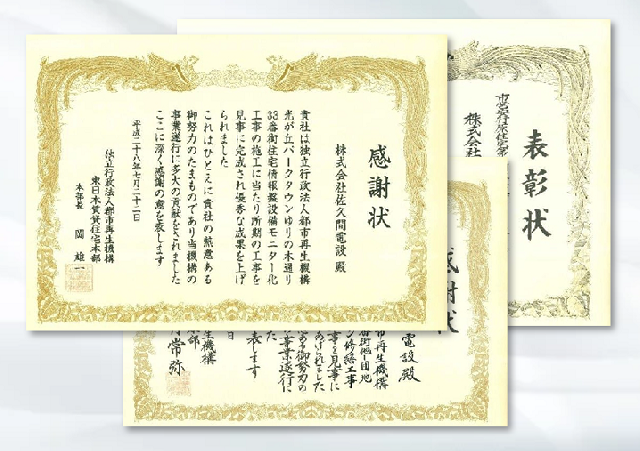 感謝状
株式会社佐久間電設 殿
貴社は独立行政法人都市再生機構
光が丘パークタウンゆりの木通り
33番街住宅情報盤設備モニター化
工事の施工に当たり所期の工事を
見事に完成され優秀な成果を上げ
られました
これはひとえに貴社の熱意ある
御努力のたまものであり当機構の
事業遂行に多大の貢献をされました
ここに深く感謝の意を表します
平成二十八年七月二十二日
独立行政法人都市再生機構
東日本賃貸住宅本部
本部長 岡 雄一
表彰状
株式会社
感謝状
電設殿
市再生機構
番街他1団地
修繕工事
事を見事に
あげられました
御努力の
事業遂行に
た
表します
日
生機構
部
常弥